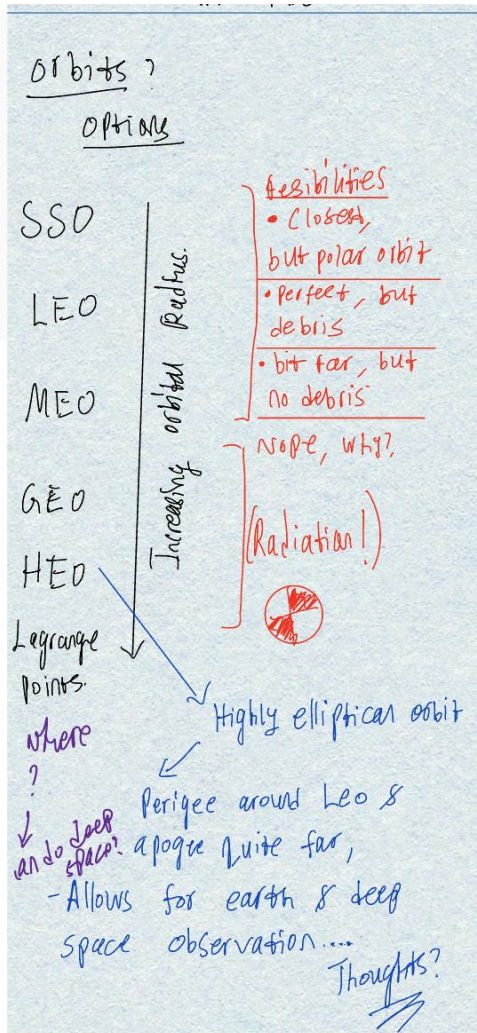 orbits?
Options
SSO
LEO
MEO
GEO
HEO
Lagrange
Points.
Increasing orbital Radius.
fesibilities
• Closest,
but polar orbit
• perfect, but
debris
• bit far, but
no debris
Nope, why?
(Radiation!)
Highly elliptical orbit
Perigee around Leo &
apogee quite far,
- Allows for earth & deep
space observation....
Thoughts?
where
?
deep
space?